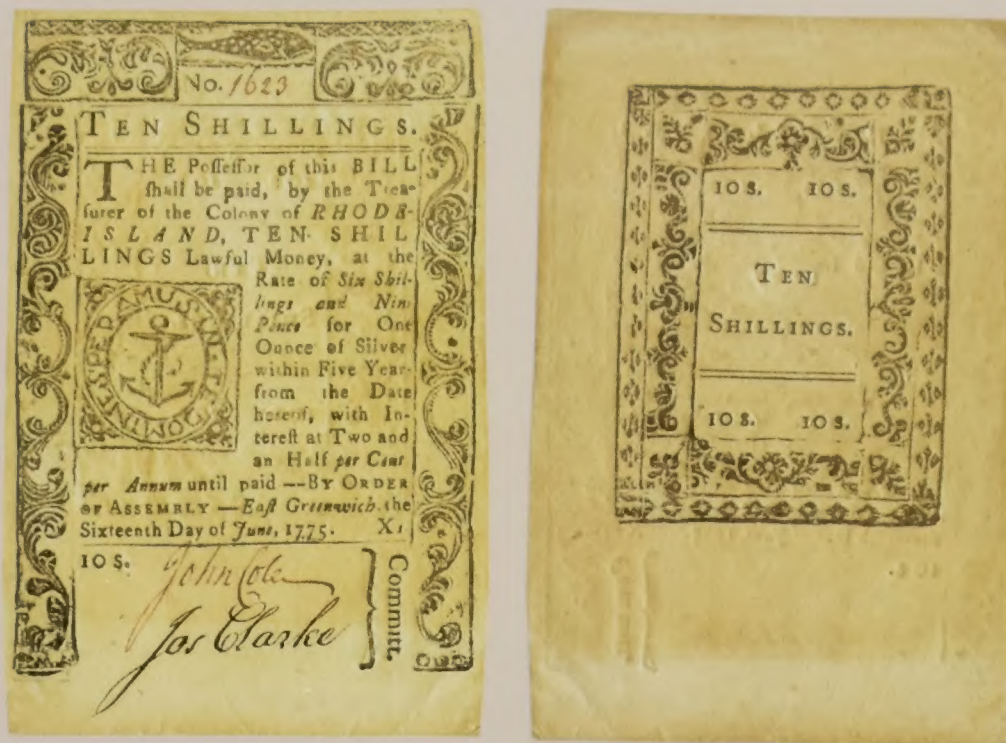 No. 1623
TEN SHILLINGS.
THE Poſſeſſor of this BILL
ſhall be paid, by the Trea-
ſurer of the Colony of RHODE-
ISLAND, TEN SHIL
LINGS Lawful Money, at the
Rate of Six Shil-
lings and Nine
Pence for One
Ounce of Silver
within Five Year
from the Date
hereof, with In-
tereſt at Two and
an Half per Cent
per Annum until paid —BY ORDER
OF ASSEMBLY —Eaſt Greenwich the
Sixteenth Day of June, 1775. X
IN TE DOMINE SPERAMUS
10 S.
John Cole
Jos Clarke
Committ.
10 S. 10 S.
TEN
SHILLINGS.
10 S. 10 S.